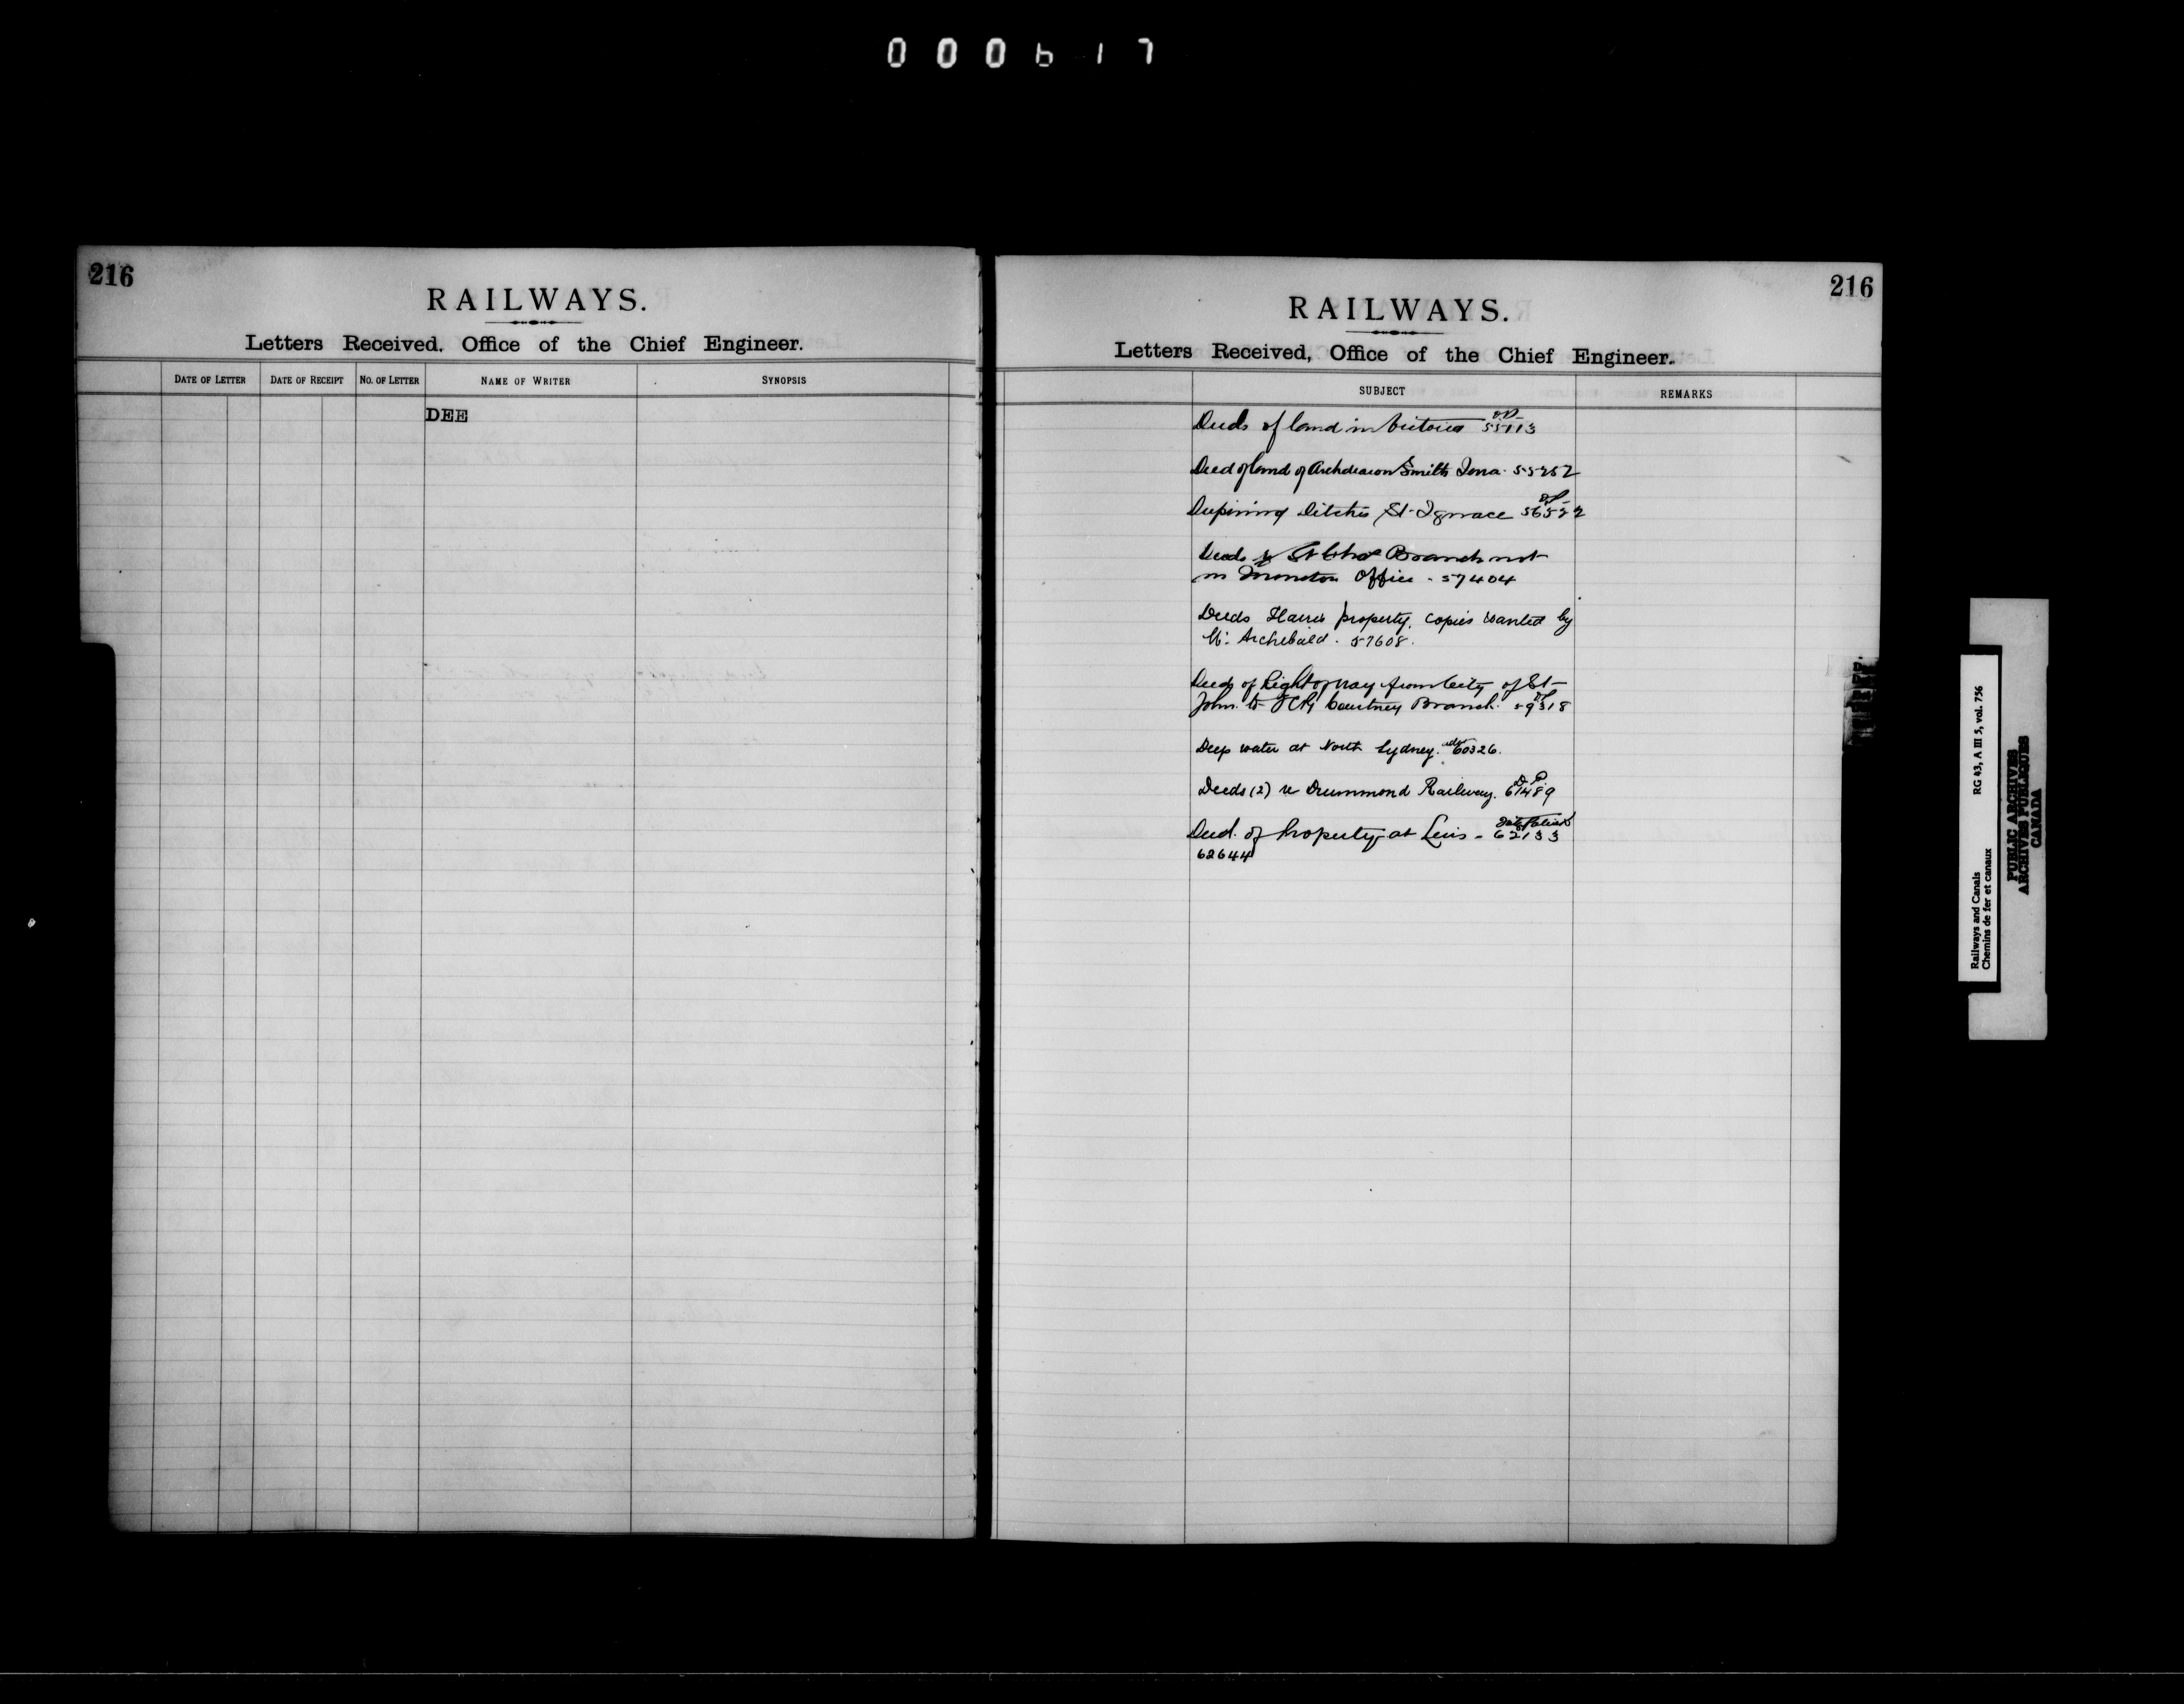 000617
216
RAILWAYS.
Letters Received, Office of the Chief Engineer.
DATE OF LETTER DATE OF RECEIPT NO. OF LETTER NAME OF WRITER SYNOPSIS
DEE
216
RAILWAYS.
Letters Received, Office of the Chief Engineer.
SUBJECT REMARKS
Deeds of land in Victoria 55113
Deed of land of Archdeacon Smith Iona 55252
Deepining Ditches St. Ignace 56522
Deeds St Chas Branch not
in Moncton Office - 57404
Deeds Harris property, copies wanted by
Mr. Archibald. 57608.
Deeds of Right of way from City of St
John to ICRy Courtney Branch. 59318
Deep water at North Sydney. 60326.
Deeds (2) re Drummond Railway. 61489
Deed of Property at Levis - 62133
62644
Railways and Canals
Chemins de fer et canaux
RG 43, A III 5, vol. 756
PUBLIC ARCHIVES
ARCHIVES PUBLIQUES
CANADA